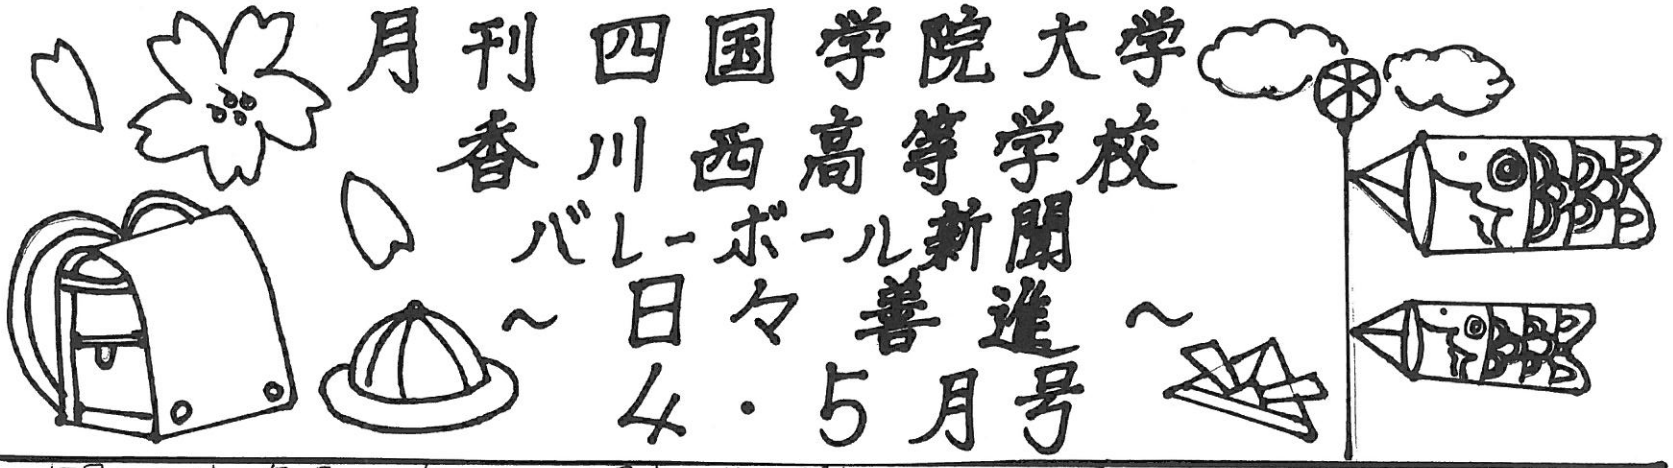 月刊四国学院大学
香川西高等学校
バレーボール新聞
~日々善進~
4・5月号